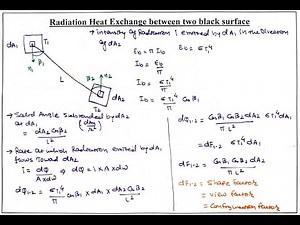 Radiation Heat Exchange between two black surface
dA1
T1
n1
β1
L
β2
n2
T2
dA2
→ Intensity of Radiation is emitted by dA1 in the Direction
of dA2
Eb = π Ib
Eb = σT1⁴
Ib = Eb/π
Ib = σT1⁴/π
Ib = σT1⁴/π Cosβ1
→ Solid Angle subtended by dA2
at dA1 (dAn/r²)
= dA2 Cosβ2 / L²
→ Rate at which Radiation emitted by dA1
flows toward dA2
dQ1-2 = σT1⁴/π Cosβ1 × dA1 × dA2 Cosβ2 / L²
dQ1-2 = Cosβ1 Cosβ2 dA2 / π L² σT1⁴ dA1
dF1-2 = Cosβ1 Cosβ2 dA2 / π L²
dF1-2 = Shape factor
= View factor
= Configuration factor